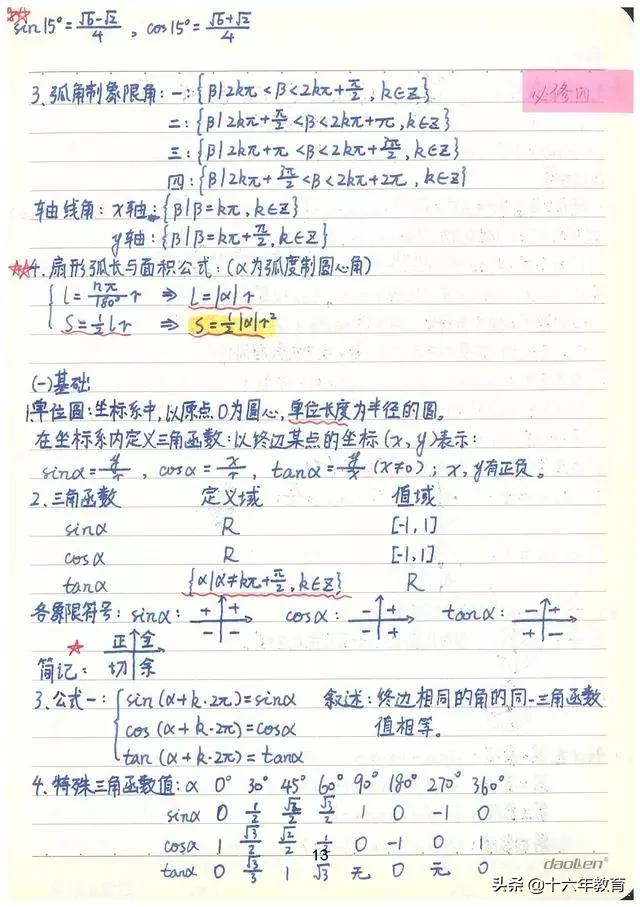 sin15°=(√6-√2)/4 , cos15°=(√6+√2)/4
必修四
3.弧角制象限角:一:{β|2kπ<β<2kπ+π/2,k∈Z}
二:{β|2kπ+π/2<β<2kπ+π,k∈Z}
三:{β|2kπ+π<β<2kπ+3π/2,k∈Z}
四:{β|2kπ+3π/2<β<2kπ+2π,k∈Z}
轴线角:x轴:{β|β=kπ,k∈Z}
y轴:{β|β=kπ+π/2,k∈Z}
4.扇形弧长与面积公式:(α为弧度制圆心角)
l=nπ/180° r ⇒ l=|α|r
S=1/2 lr ⇒ S=1/2|α|r²
(一)基础:
1.单位圆:坐标系中,以原点O为圆心,单位长度为半径的圆。
在坐标系内定义三角函数:以终边某点的坐标(x,y)表示:
sinα=y/r , cosα=x/r , tanα=y/x (x≠0) ; x,y有正负。
2.三角函数 定义域 值域
sinα R [-1,1]
cosα R [-1,1]
tanα {α|α≠kπ+π/2,k∈Z} R
各象限符号:sinα: + + cosα: - + tanα: - +
- - - + + -
正 全
简记: 切 余
3.公式一:{ sin(α+k·2π)=sinα 叙述:终边相同的角的同一三角函数
cos(α+k·2π)=cosα 值相等。
tan(α+k·2π)=tanα
4.特殊三角函数值:α 0° 30° 45° 60° 90° 180° 270° 360°
sinα 0 1/2 √2/2 √3/2 1 0 -1 0
cosα 1 √3/2 √2/2 1/2 0 -1 0 1
13
tanα 0 √3/3 1 √3 无 0 无 0
daoLen®
头条@十六年教育